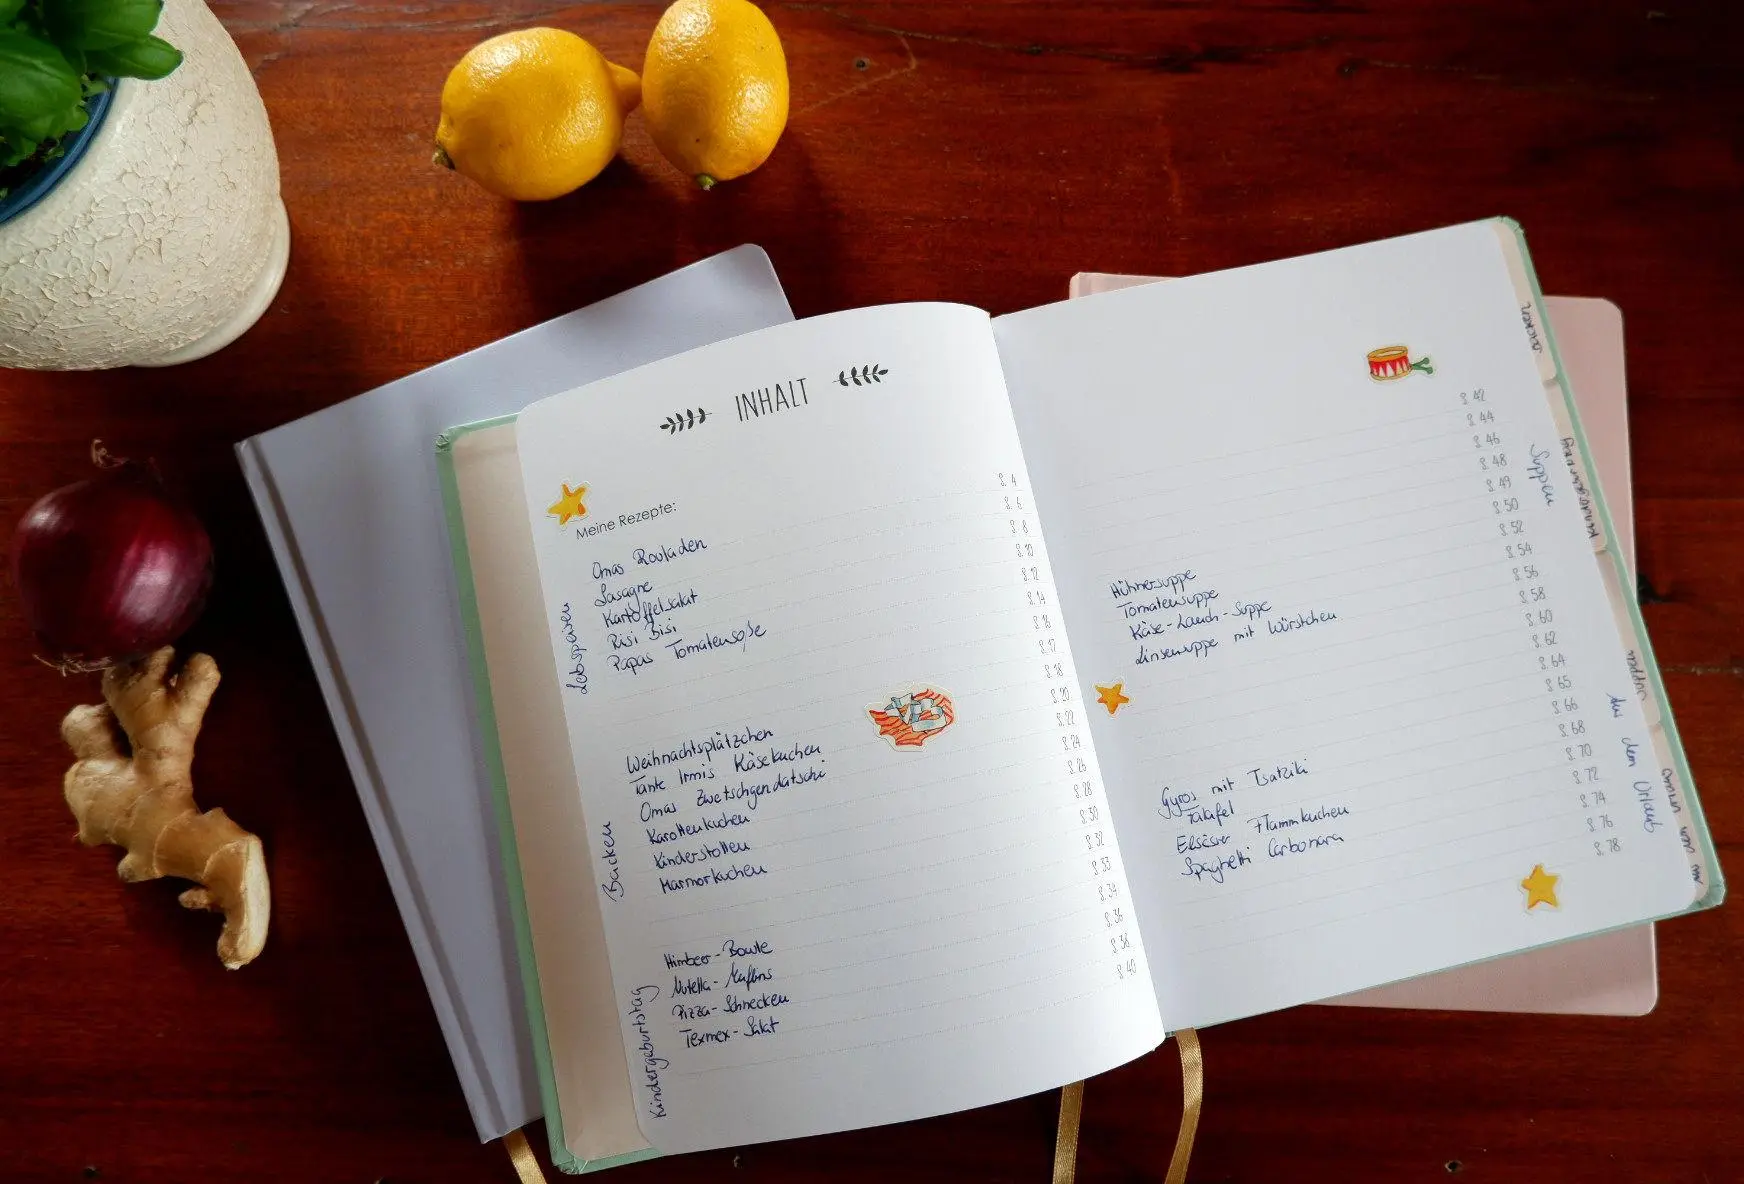 INHALT
Meine Rezepte:
Lebspeisen
Omas Rouladen
Lasagne
Kartoffelsalat
Risi Bisi
Papas Tomatensoße
Backen
Weihnachtsplätzchen
Tante Irmis Käsekuchen
Omas Zwetschgendatschi
Karottenkuchen
Kinderstollen
Marmorkuchen
Kindergeburtstag
Himbeer-Bowle
Nutella-Muffins
Pizza-Schnecken
Texmex-Salat
S. 4
S. 6
S. 8
S. 10
S. 12
S. 14
S. 16
S. 17
S. 18
S. 20
S. 22
S. 24
S. 26
S. 28
S. 30
S. 32
S. 33
S. 34
S. 36
S. 38
S. 40
Suppen
Hühnersuppe
Tomatensuppe
Käse-Lauch-Suppe
Linsensuppe mit Würstchen
Aus dem Urlaub
Gyros mit Tsatziki
Falafel
Elsässer Flammkuchen
Spaghetti Carbonara
S. 42
S. 44
S. 46
S. 48
S. 49
S. 50
S. 52
S. 54
S. 56
S. 58
S. 60
S. 62
S. 64
S. 65
S. 66
S. 68
S. 70
S. 72
S. 74
S. 76
S. 78
Backen
Kindergeburtstag
Suppen